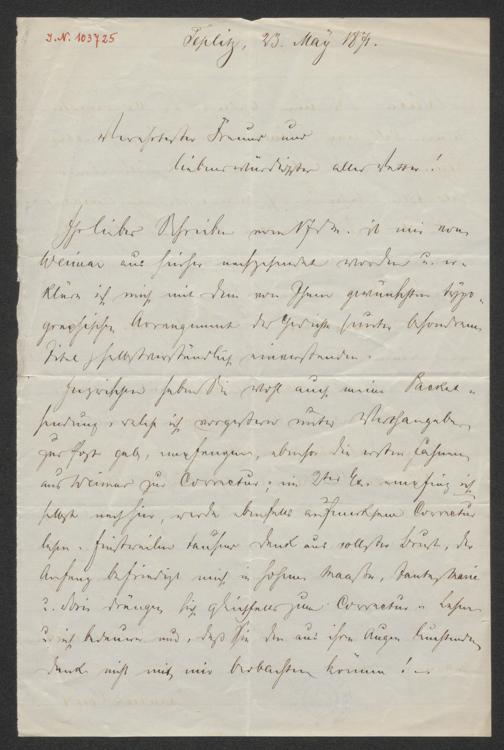 I.N. 103725
Teplitz, 23. May 187.
Verehrtester Freund und
liebenswürdigster aller Vetter!
Ihr liebes Schreiben vom d. M. ist mir von
Weimar aus hierher nachgesendet worden u. er-
kläre ich mich mit dem von Ihnen gewünschten typo-
graphischen Arrangement der Gedichte (unter besonderem
Titel) selbstverständlich einverstanden.
Inzwischen haben Sie wohl auch meine Packet-
sendung, welche ich vorgestern unter Werthangabe
zur Post gab, empfangen, ebenso die ersten Fahnen
aus Weimar zur Correctur; ein 2tes Ex. empfing ich
selbst nach hier, werde ebenfalls aufmerksam Correctur
lesen. Einstweilen tausend Dank aus vollster Brust, der
Anfang befriedigt mich in hohem Maaße, Tante Marie
u. Doris drängen sich gleichfalls zum Correctur-Lesen
u. ich bedaure nur, daß Sie den aus ihren Augen leuchtenden
Dank nicht mit mir beobachten können! –